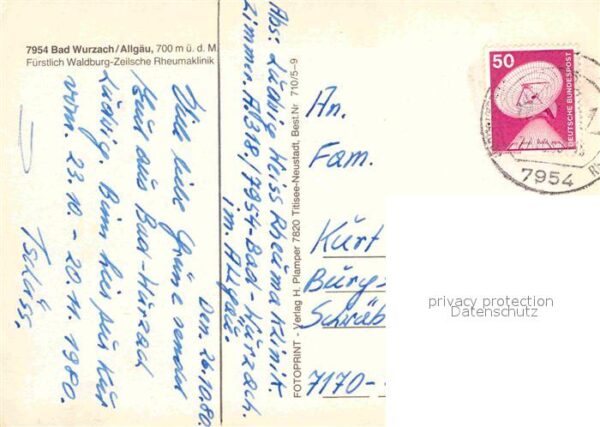 7954 Bad Wurzach/Allgäu, 700 m ü. d. M.
Fürstlich Waldburg-Zeilsche Rheumaklinik
Abs: Ludwig Heiss Rheumaklinik
Zimmer. A/318, 7954-Bad-Wurzach.
im. Allgäu.
Den. 26.10.80.
Viele liebe Grüsse sendet
Euch aus Bad-Wurzach
Ludwig. Binn hier zur Kur
vom. 23.10. - 20.11. 1980.
Tschüss.
FOTOPRINT - Verlag H. Plamper 7820 Titisee-Neustadt, Best.Nr 710/5-9
An.
Fam.
Kurt
Burg-
Schwäb
7170-
50
DEUTSCHE BUNDESPOST
7954
privacy protection
Datenschutz